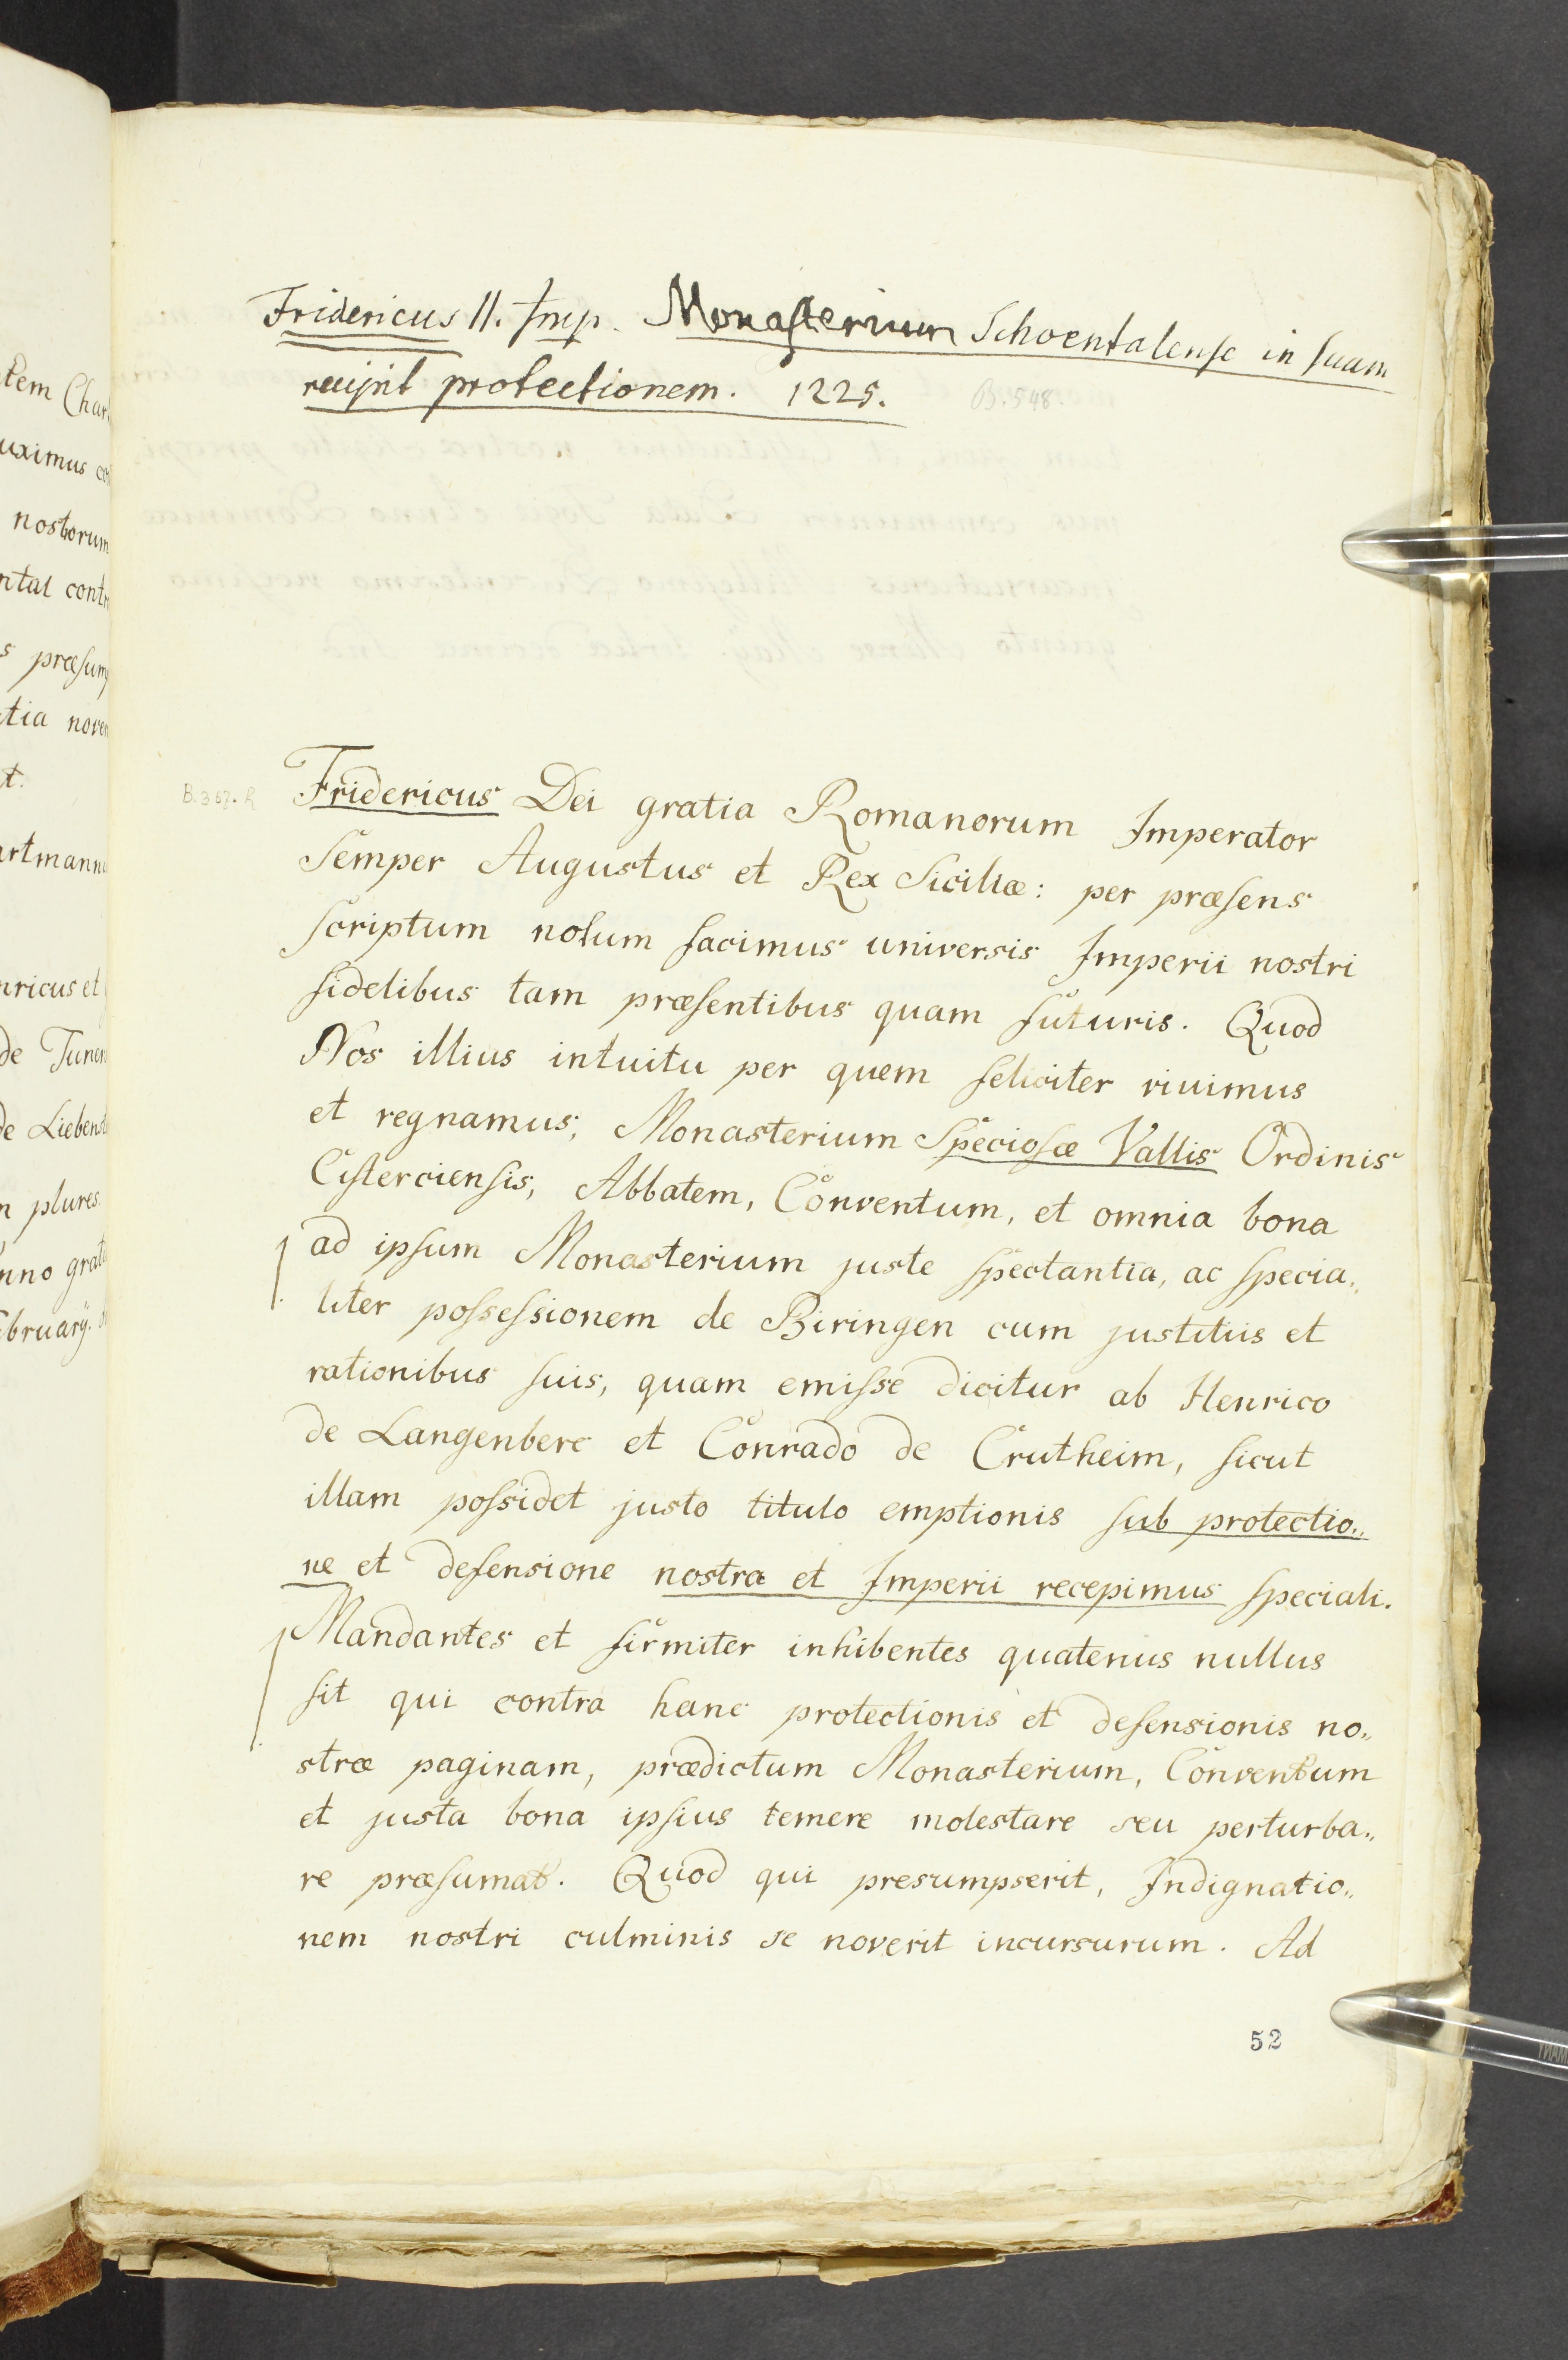 tem Char
uximus co
nostrorum
ntal contr
s præsum
tia noven
t.
artmann
nricus et
de Tunen
de Liebenst
n plures.
nno grat
ebruarÿ.
Fridericus II. Imp. Monasterium Schoentalense in suam
recipit protectionem. 1225. B. 548.
B. 367. R
Fridericus Dei gratia Romanorum Imperator
Semper Augustus et Rex Siciliæ: per præsens
scriptum notum facimus universis Imperii nostri
fidelibus tam præsentibus quam futuris. Quod
Nos illius intuitu per quem feliciter vivimus
et regnamus, Monasterium Speciosæ Vallis Ordinis
Cisterciensis, Abbatem, Conventum, et omnia bona
ad ipsum Monasterium juste spectantia, ac specia„
liter possessionem de Biringen cum justitiis et
rationibus suis, quam emisse dicitur ab Henrico
de Langenberc et Conrado de Crutheim, sicut
illam possidet justo titulo emptionis sub protectio„
ne et defensione nostra et Imperii recepimus speciali.
Mandantes et firmiter inhibentes quatenus nullus
sit qui contra hanc protectionis et defensionis no„
stræ paginam, prædictum Monasterium, Conventum
et justa bona ipsius temere molestare seu perturba„
re præsumat. Quod qui presumpserit, Indignatio„
nem nostri culminis se noverit incursurum. Ad
52